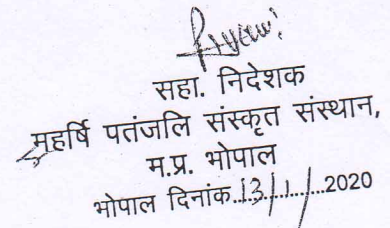 सहा. निदेशक
महर्षि पतंजलि संस्कृत संस्थान,
म.प्र. भोपाल
भोपाल दिनांक..13/1/....2020